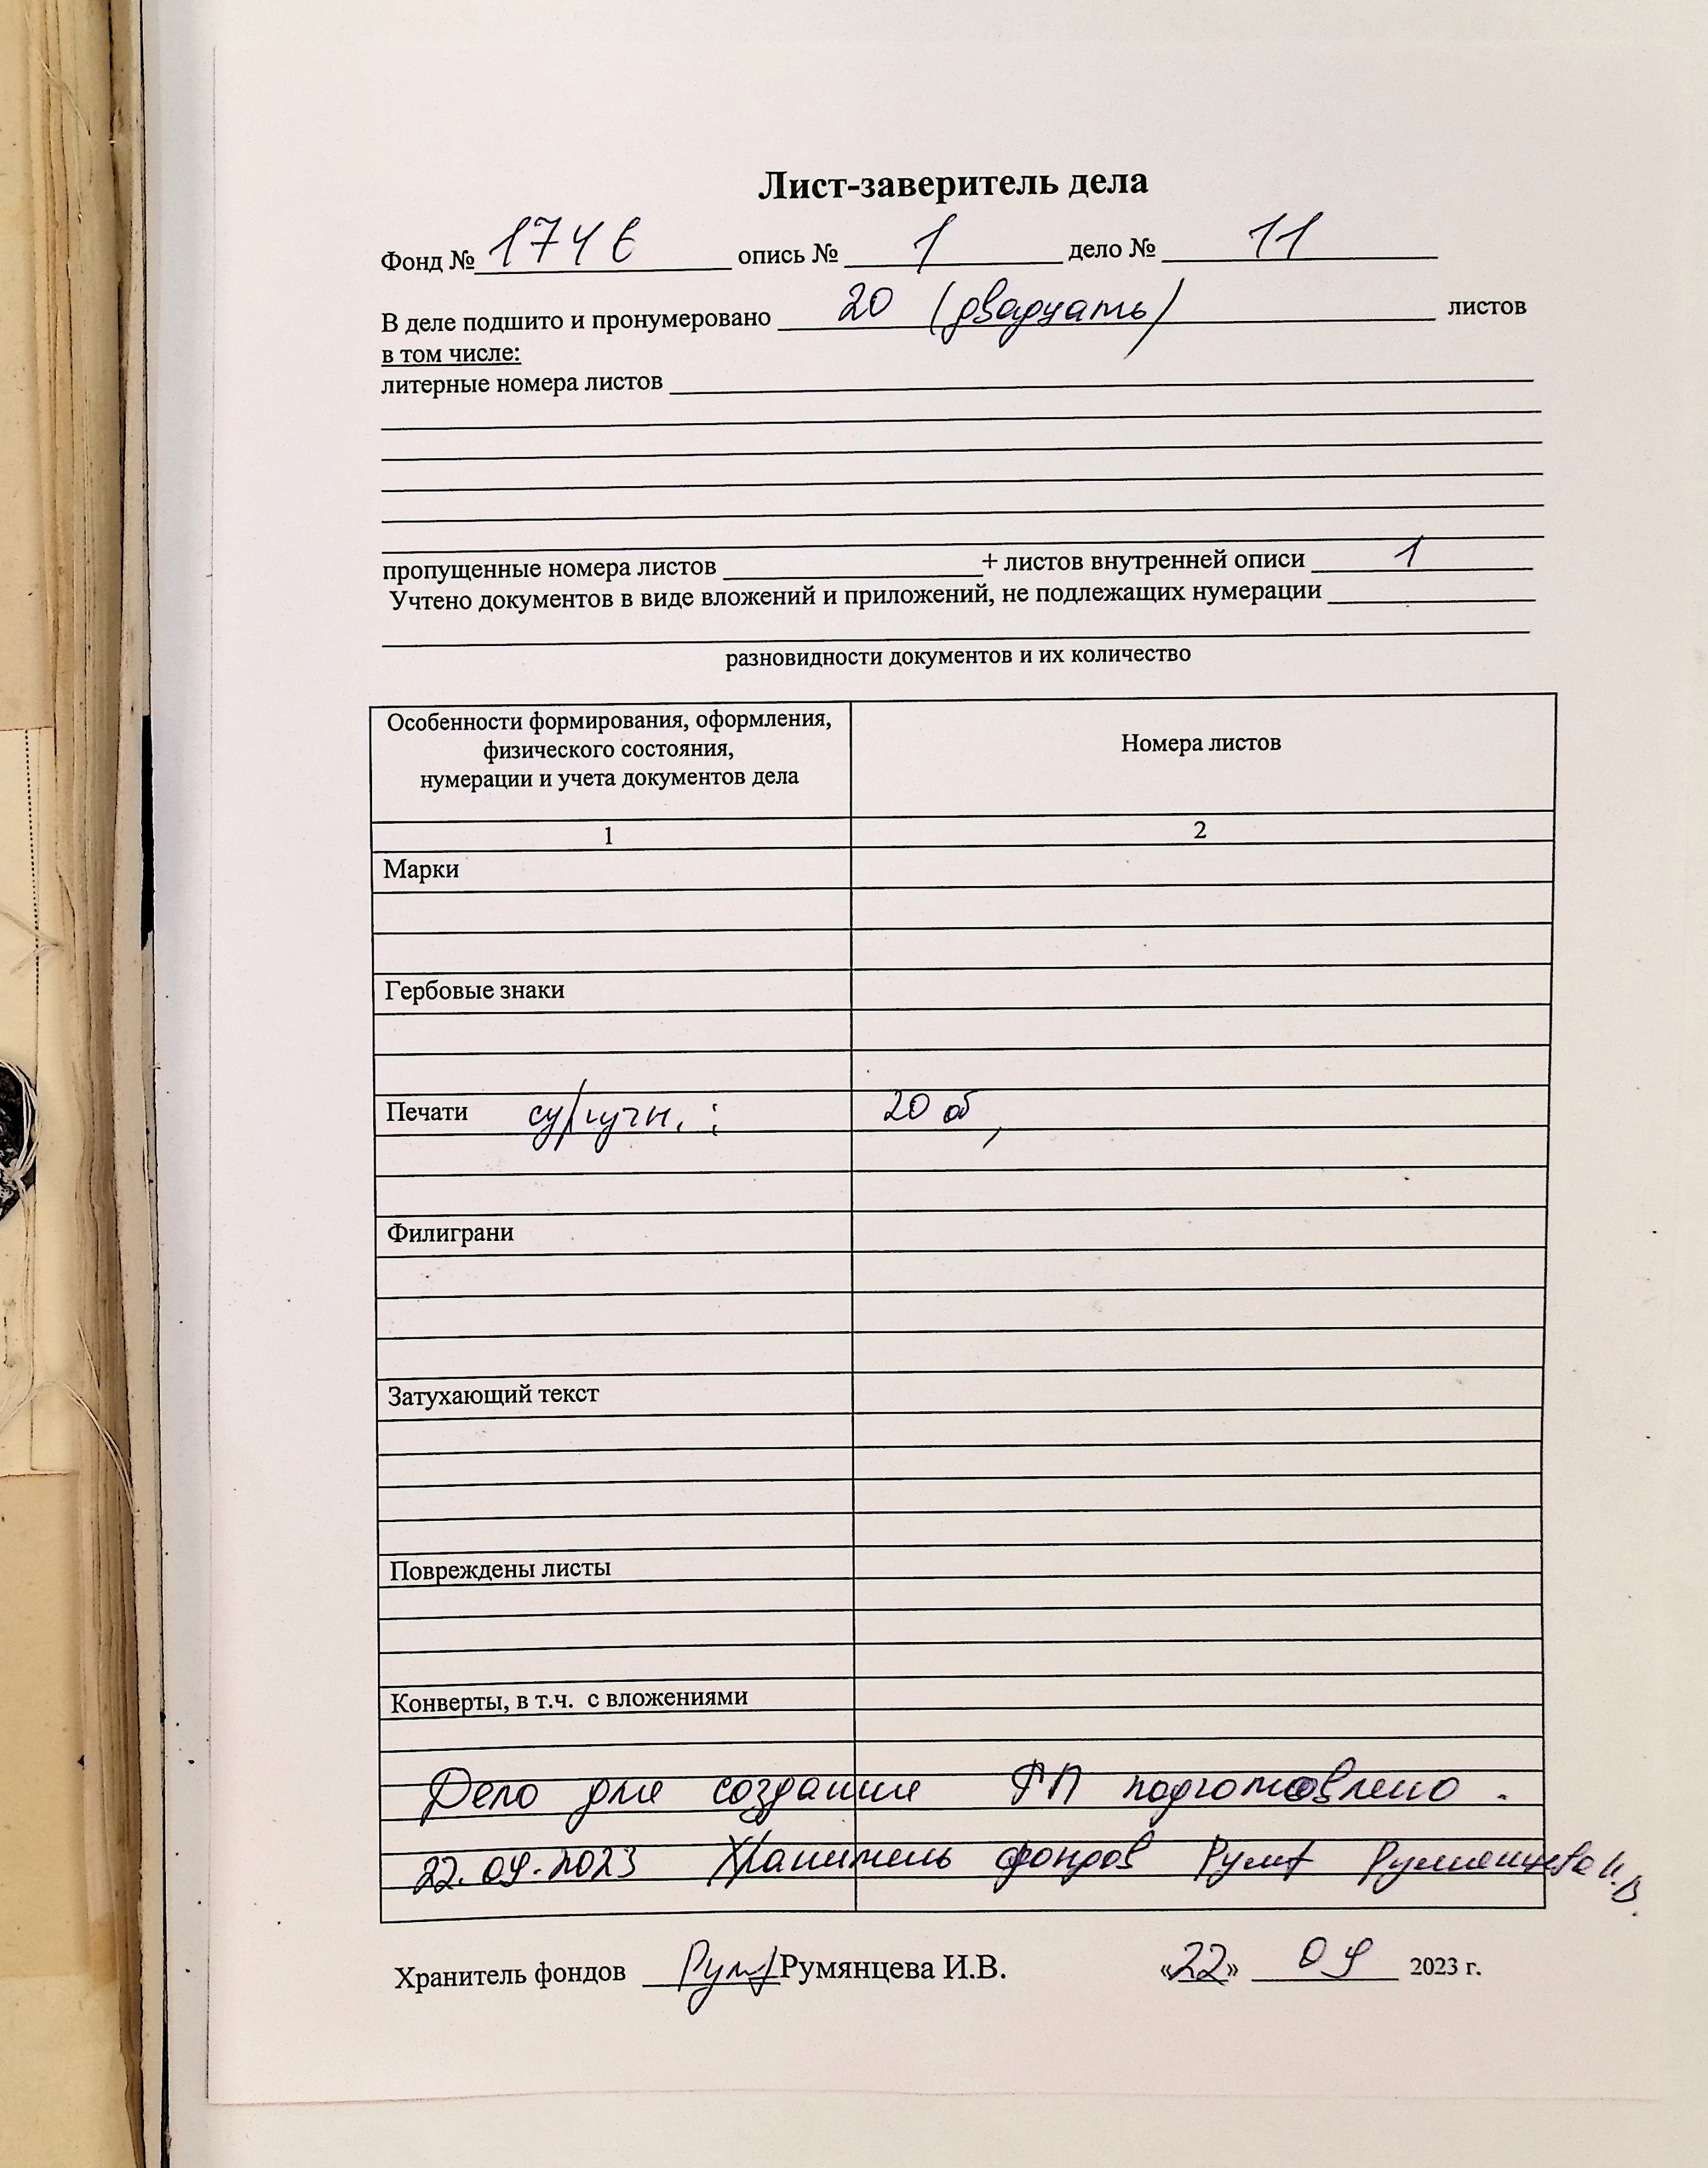 Лист-заверитель дела
Фонд № 1746 опись № 1 дело № 11
В деле подшито и пронумеровано 20 (двадцать) листов
в том числе:
литерные номера листов
пропущенные номера листов + листов внутренней описи 1
Учтено документов в виде вложений и приложений, не подлежащих нумерации
разновидности документов и их количество
Особенности формирования, оформления,
физического состояния,
нумерации и учета документов дела
Номера листов
1 2
Марки
Гербовые знаки
Печати сургучн. : 20 об,
Филиграни
Затухающий текст
Повреждены листы
Конверты, в т.ч. с вложениями
Дело для создания ФП подготовлено.
22.09.2023 Хранитель фондов Румянцева И.В.
Хранитель фондов Румянцева И.В. «22» 09 2023 г.